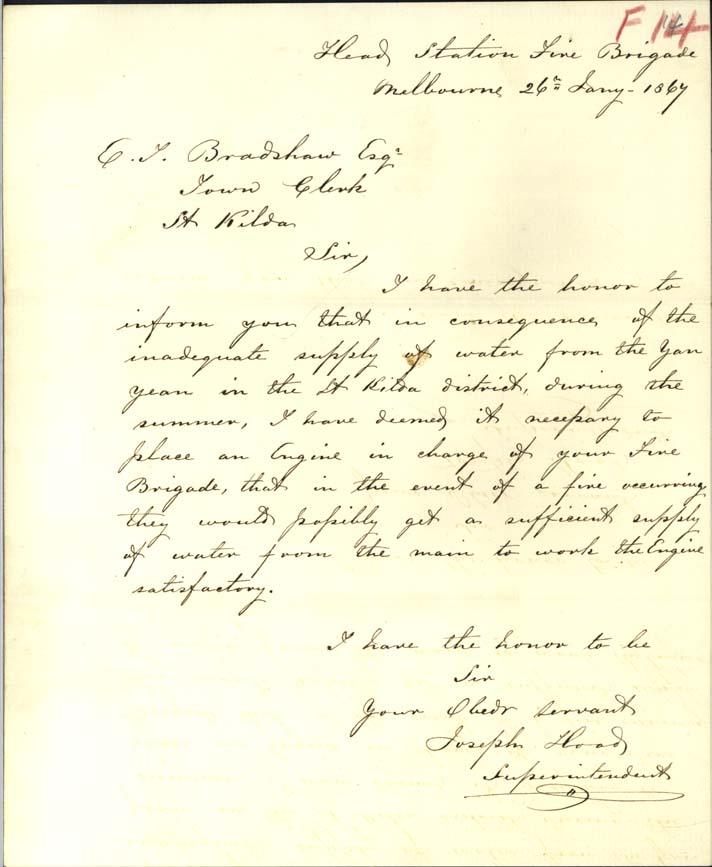 F 14
Head Station Fire Brigade
Melbourne 26th Jany - 1867
E. T. Bradshaw Esqr
Town Clerk
St Kilda
Sir,
I have the honor to
inform you that in consequence of the
inadequate supply of water from the Yan
Yean in the St Kilda district, during the
summer, I have deemed it necessary to
place an Engine in charge of your Fire
Brigade, that in the event of a fire occurring
they would possibly get a sufficient supply
of water from the main to work the Engine
satisfactory.
I have the honor to be
Sir
Your Obedt servant
Joseph Hoad
Superintendent